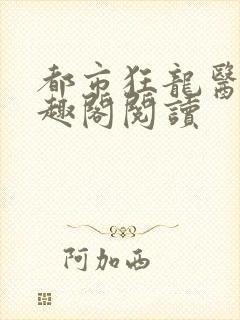 都市狂龍醫
趣閣閱讀
阿加西